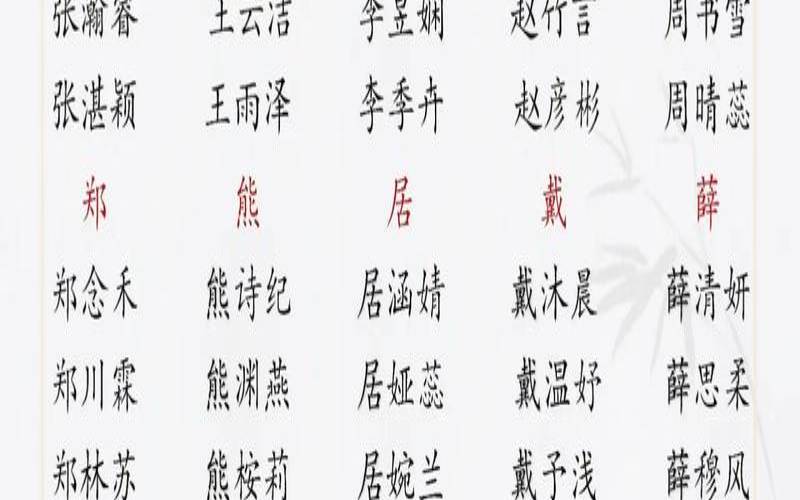 张瀚睿 王云洁 李昱娴 赵竹言 周书雪
张湛颖 王雨泽 李季卉 赵彦彬 周晴蕊
郑 熊 居 戴 薛
郑念禾 熊诗纪 居涵婧 戴沐晨 薛清妍
郑川霖 熊渊燕 居娅蕊 戴温妤 薛思柔
郑林苏 熊桉莉 居婉兰 戴予浅 薛穆风